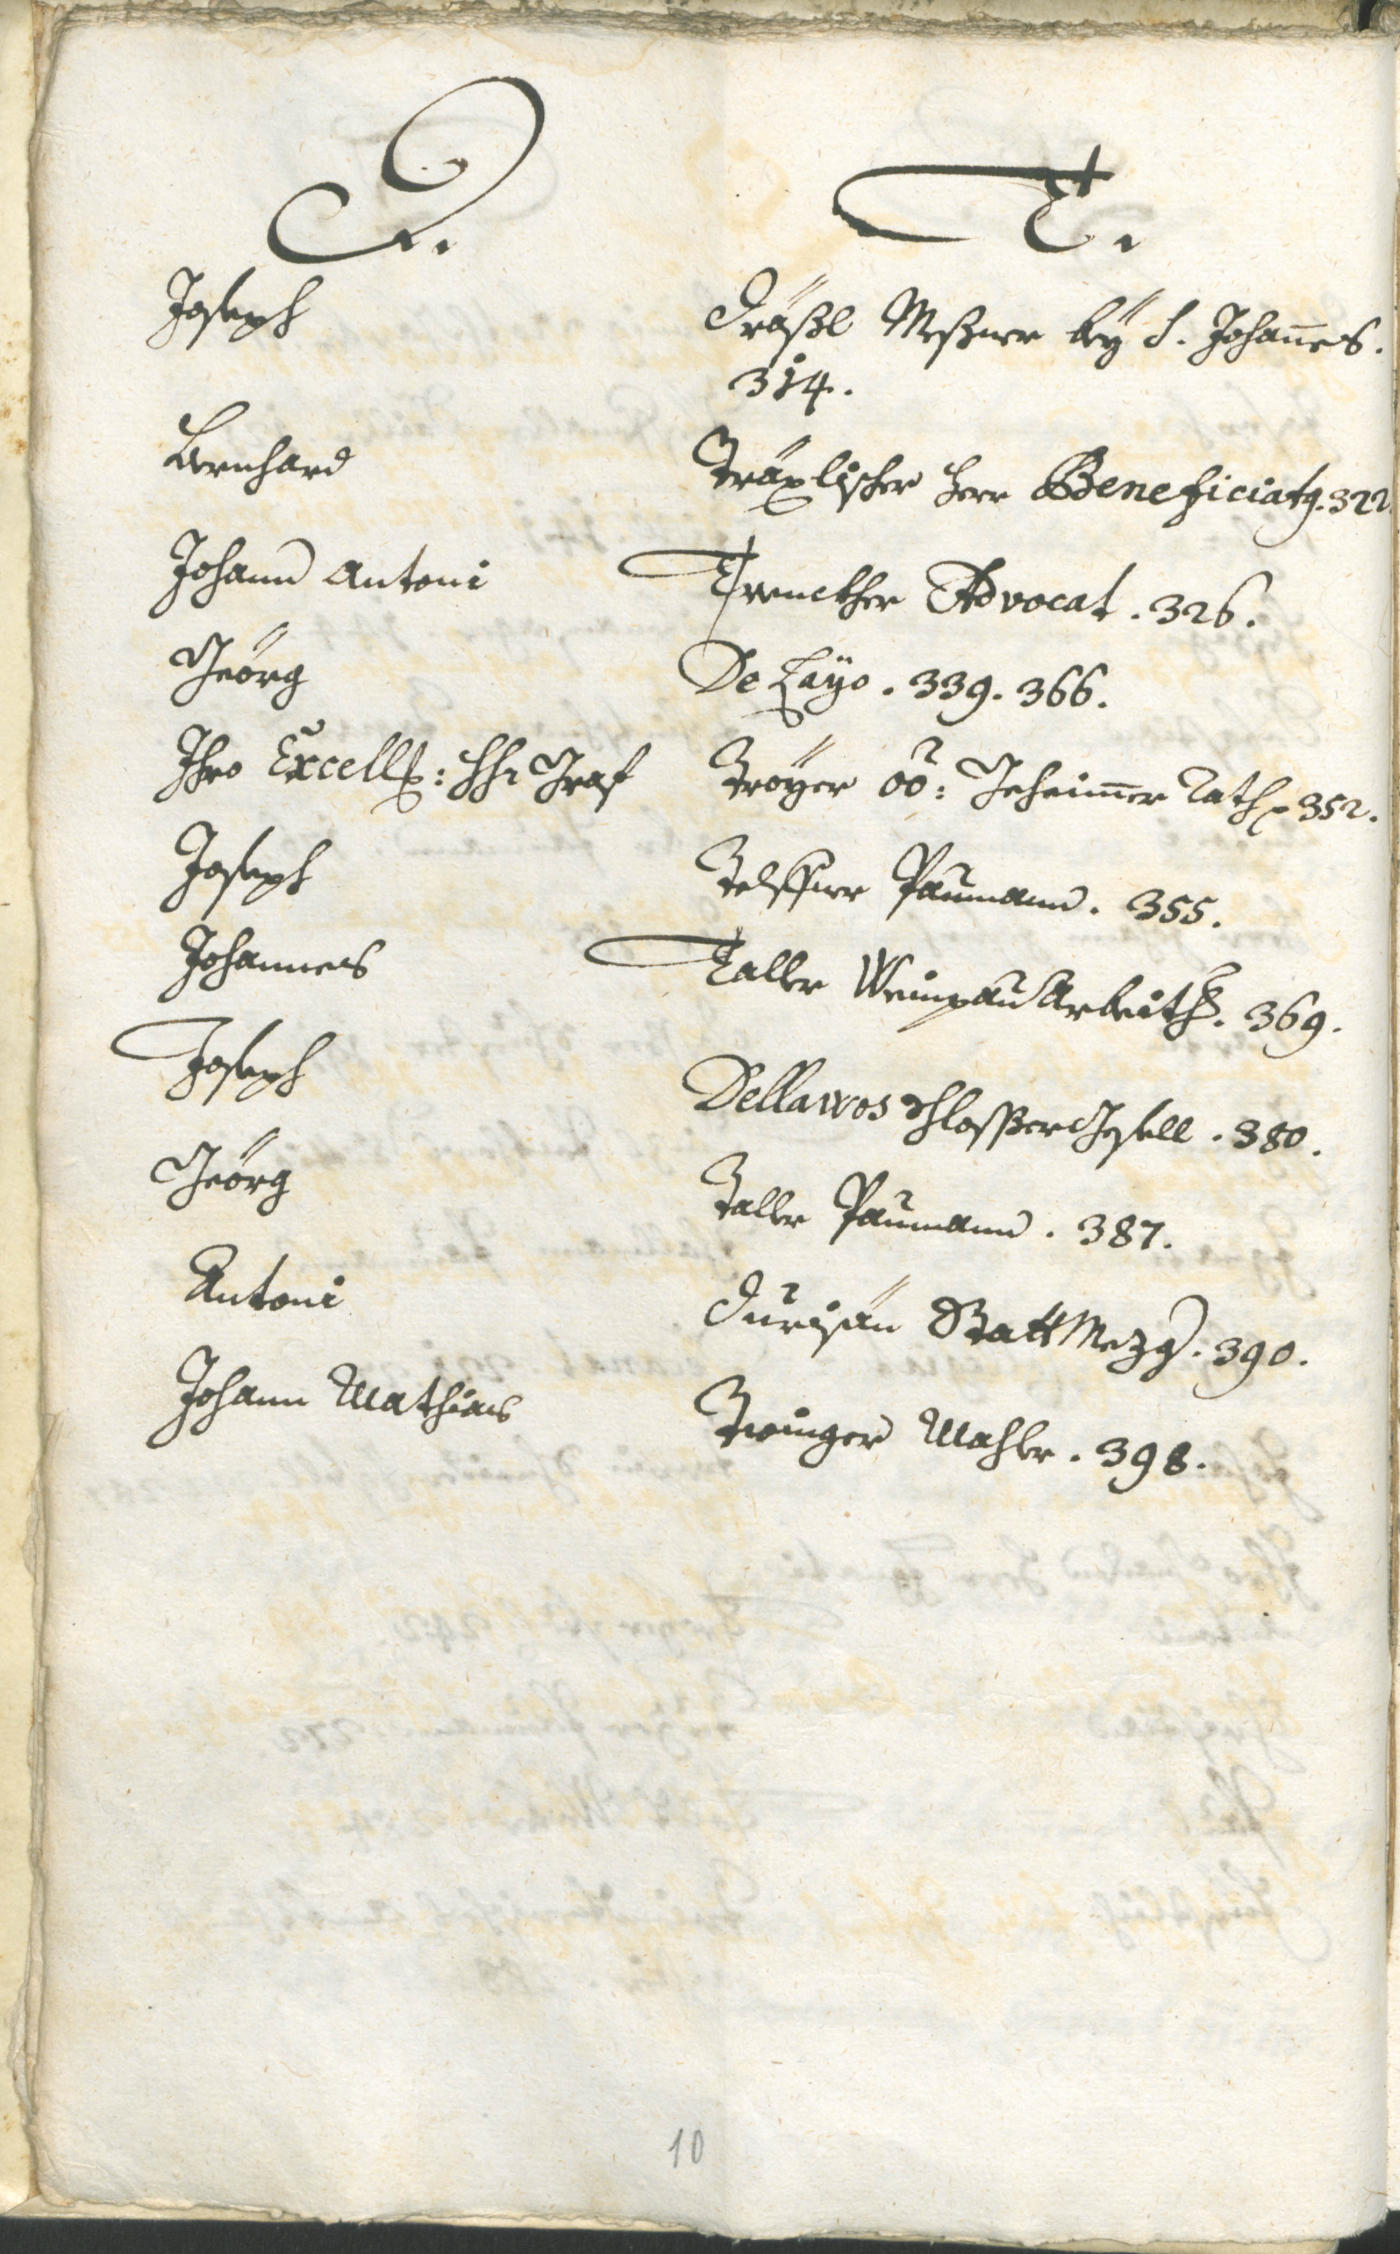 D. T.
Joseph Dräßl Meßner bey S. Johannes.
314.
Bernhard Träxlischer Herr Beneficiatg. 322.
Johann Antoni Trenckher Advocat. 326.
Geörg De Layo. 339. 366.
Ihro Excell: Graf Tröyer oö: Geheimer Rath 352.
Joseph Telsser Paumann. 355.
Johannes Taller Weinpau Arbeith. 369.
Joseph Schlosser Gesell. 380.
Geörg Taller Paumann. 387.
Antoni Durisän Statt Mezg. 390.
Johann Mathias Twinger Mahler. 398.
10